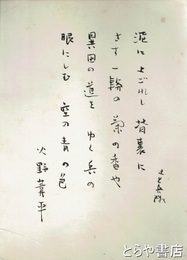 泥によごれし背嚢に
さす一輪の菊の香や
異国の道をゆく兵の
眼にしむ空の青の色
火野葦平
とらや書店